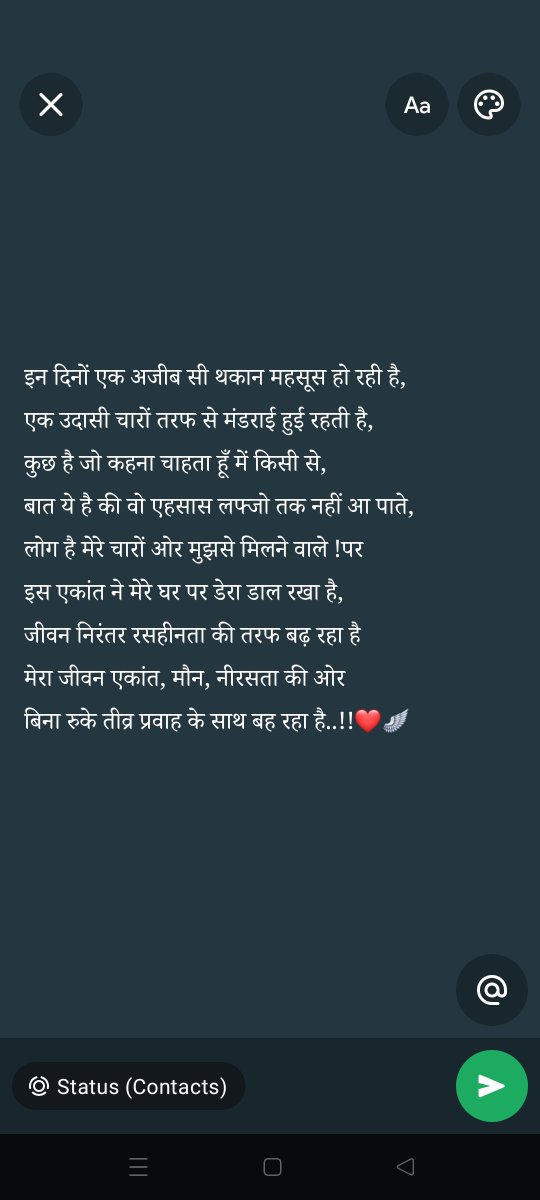 Aa
इन दिनों एक अजीब सी थकान महसूस हो रही है,
एक उदासी चारों तरफ से मंडराई हुई रहती है,
कुछ है जो कहना चाहता हूँ में किसी से,
बात ये है की वो एहसास लफ्जो तक नहीं आ पाते,
लोग है मेरे चारों ओर मुझसे मिलने वाले !पर
इस एकांत ने मेरे घर पर डेरा डाल रखा है,
जीवन निरंतर रसहीनता की तरफ बढ़ रहा है
मेरा जीवन एकांत, मौन, नीरसता की ओर
बिना रुके तीव्र प्रवाह के साथ बह रहा है..!!❤️🪽
@
Status (Contacts)